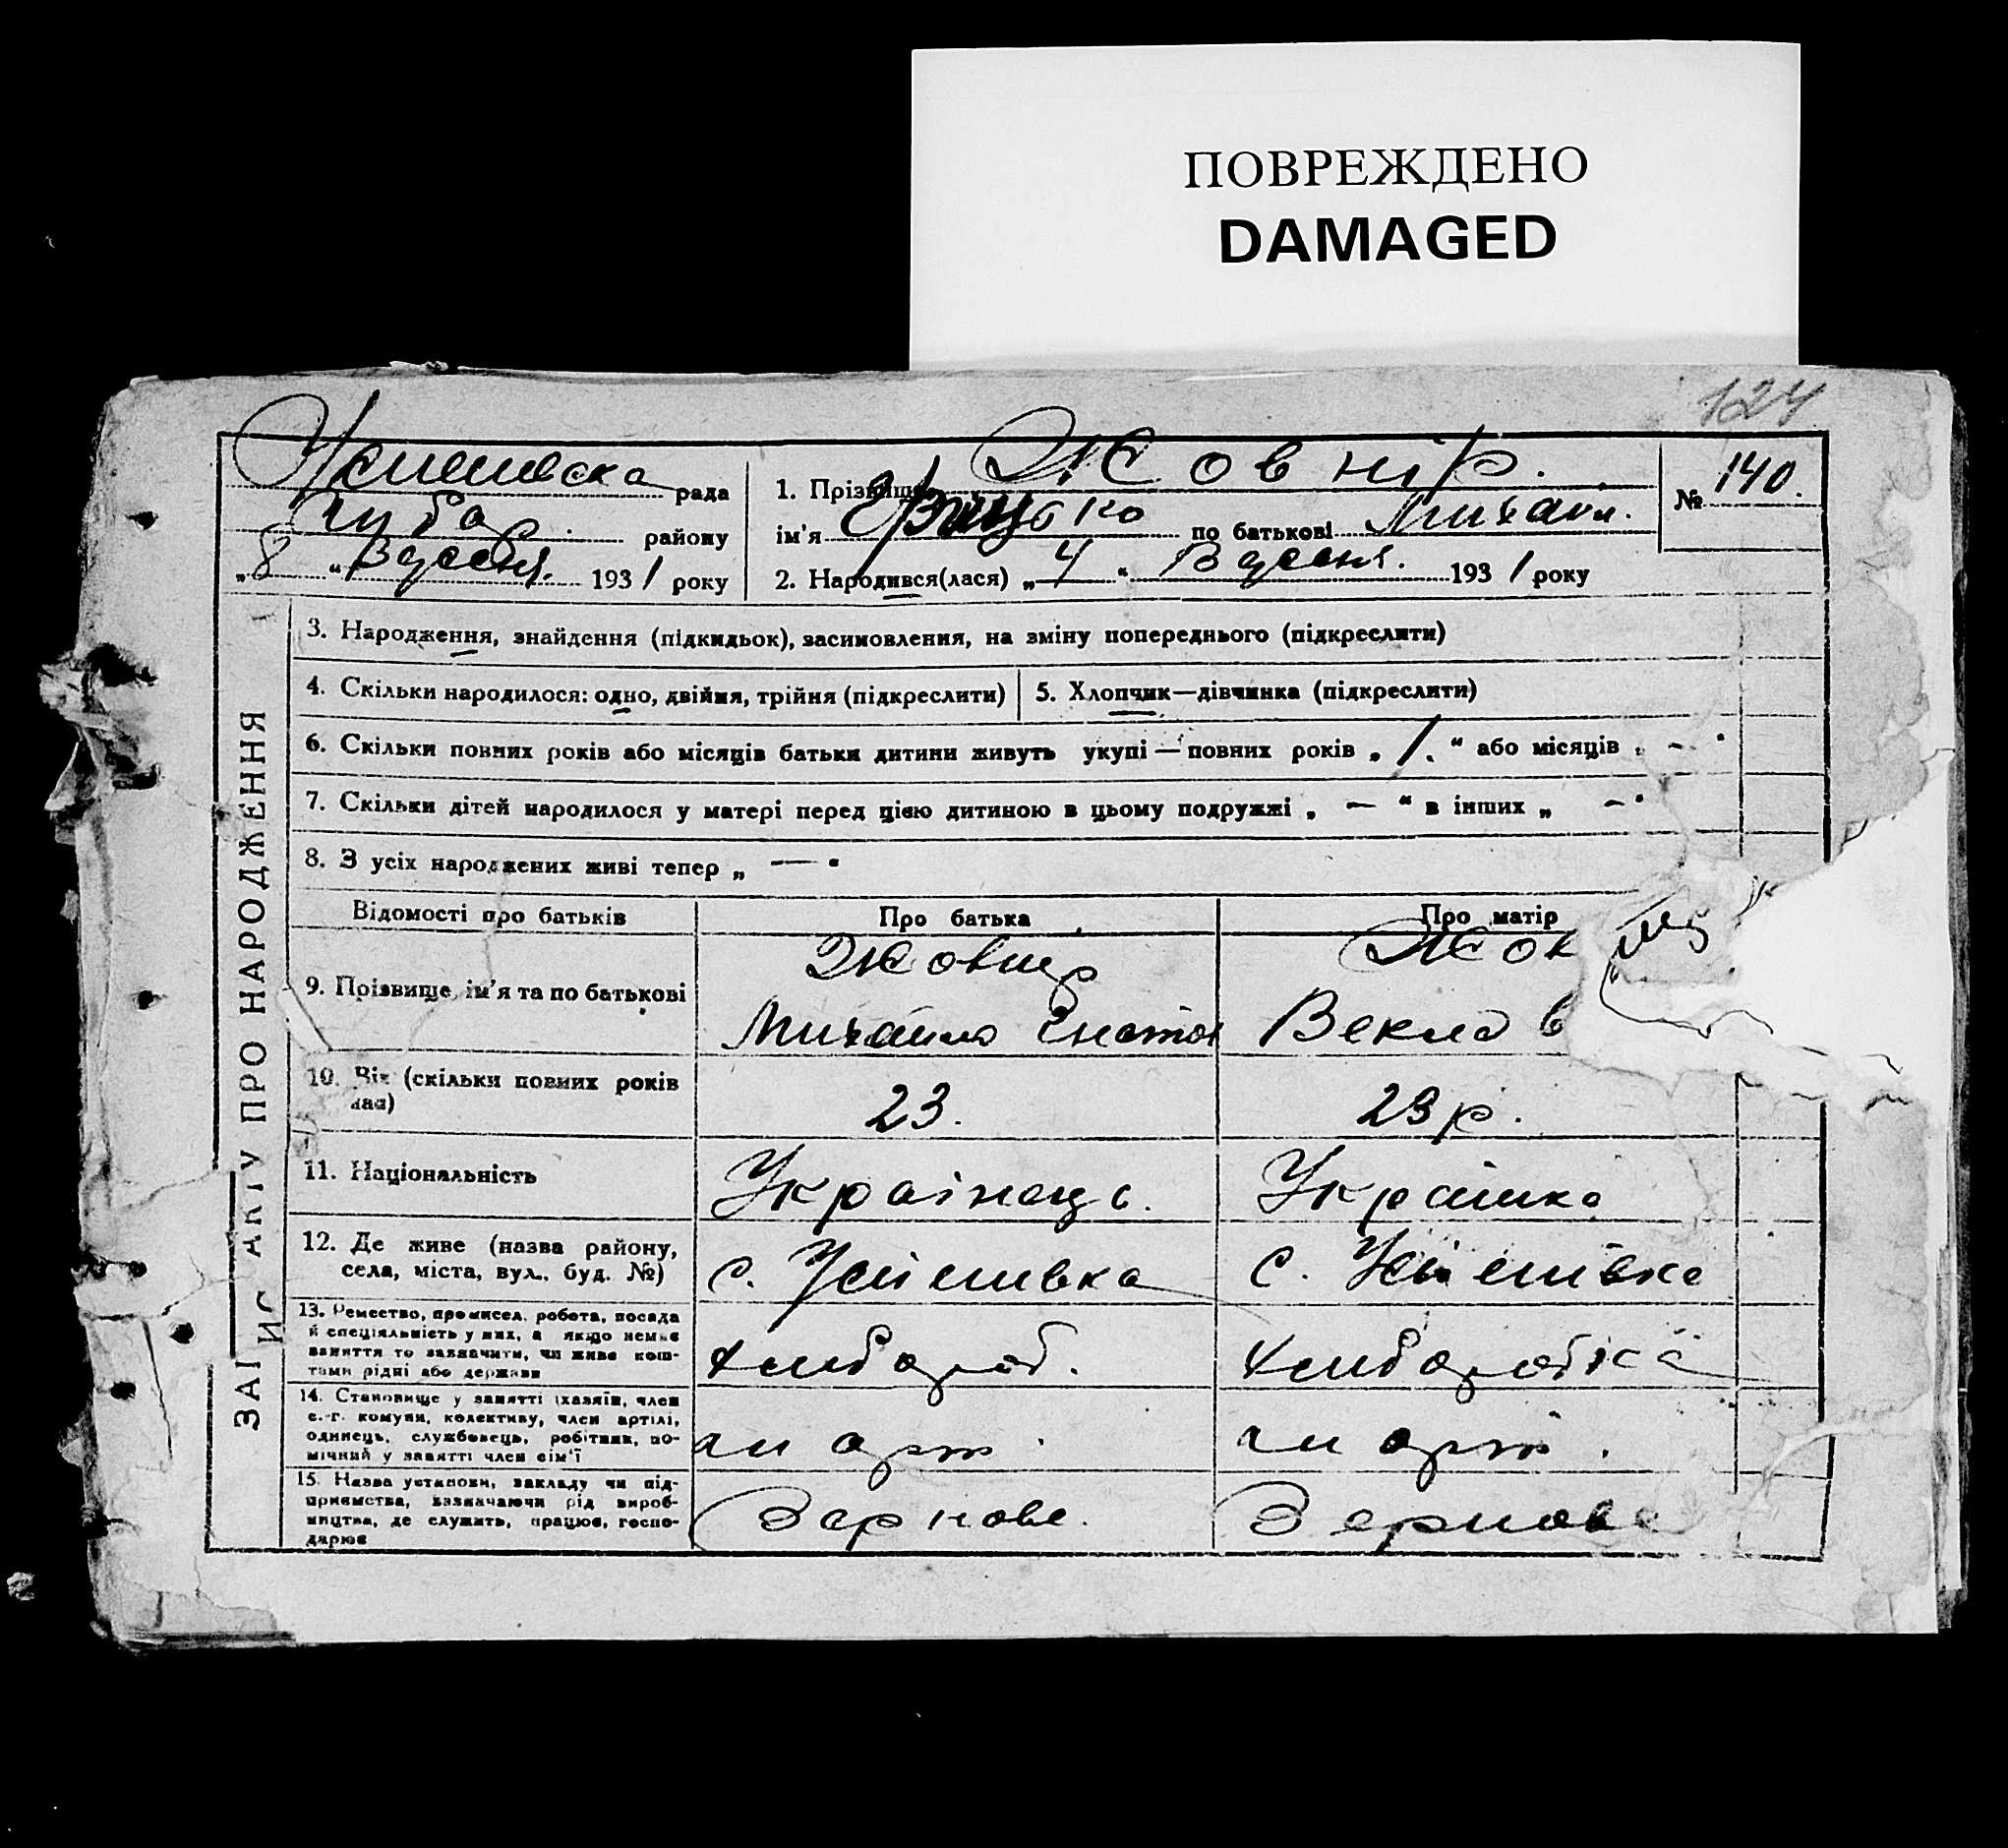 ПОВРЕЖДЕНО
DAMAGED
124
рада
району
„8“ Вересня. 1931 року
1. Прізвище Жовнір.
ім'я Грицько по батькові Михайл.
2. Народився(лася) „4“ Вересня. 1931 року
№ 140.
ЗАПИС АКТУ ПРО НАРОДЖЕННЯ
3. Народження, знайдення (підкидьок), засиновлення, на зміну попереднього (підкреслити)
4. Скільки народилося: одно, двійня, трійня (підкреслити)
5. Хлопчик—дівчинка (підкреслити)
6. Скільки повних років або місяців батьки дитини живуть укупі — повних років „1.“ або місяців „—“
7. Скільки дітей народилося у матері перед цією дитиною в цьому подружжі „—“ в інших „—“
8. З усіх народжених живі тепер „—“
Відомості про батьків
Про батька
Про матір
9. Прізвище, ім'я та по батькові
Жовнер
Михайло
Жов
Векла
10. Вік (скільки повних років
має)
23.
23 р.
11. Національність
Українець.
Українка
12. Де живе (назва району,
села, міста, вул., буд. №)
с.
с.
13. Ремество, промисел, робота, посада
й спеціяльність у них, а якщо немає
заняття то зазначити, чи живе кош-
тами рідні або держави
хлібороб.
хліборобка
14. Становище у занятті (хазяїн, член
с.-г. комуни, колективу, член артілі,
одинець, службовець, робітник, по-
мічний у занятті член сім'ї
чл арт.
чл арт.
15. Назва установи, закладу чи під-
приємства, зазначаючи рід вироб-
ництва, де служить, працює, госпо-
дарює
Зернове.
Зернове